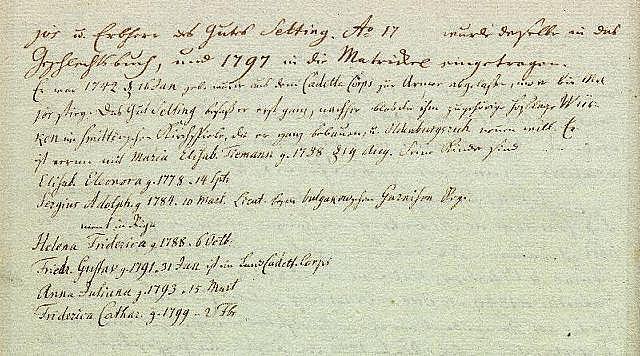 jor u. Erbherr des Guts Selting. Ao 17 wurde derselbe in das
Geschlechtsbuch, und 1797 in die Matrickel eingetragen.
Er war 1742 d. 16 Jan. geb. wurde aus dem Cadette Corps zur Armee abgelassen, wo er bis Ma
jor stieg. Das Gut Selting besaß er erst ganz, nachher blos die ihm zugehörige Hoflage Wie
ken im Kirchspiele, die er ganz bebauen, u. nennen will. Er
ist verm. mit Maria Elisab. Tiemann g. 1738 d. 19 Seine Kinder sind
Elisab. Eleonora g. 1778. 14 Spt.
Sergius Adolph. g. 1784. 10 Mart. Lieut. beym Garnison Rig.
wont in Riga
Helena Friderica g. 1788. 6 Octb.
Fridr. Gustav g. 1791. 31 Jan ist im LandCadett. Corps
Anna Juliana g. 1793. 15 Mart
Friderica Cathar. g. 1799